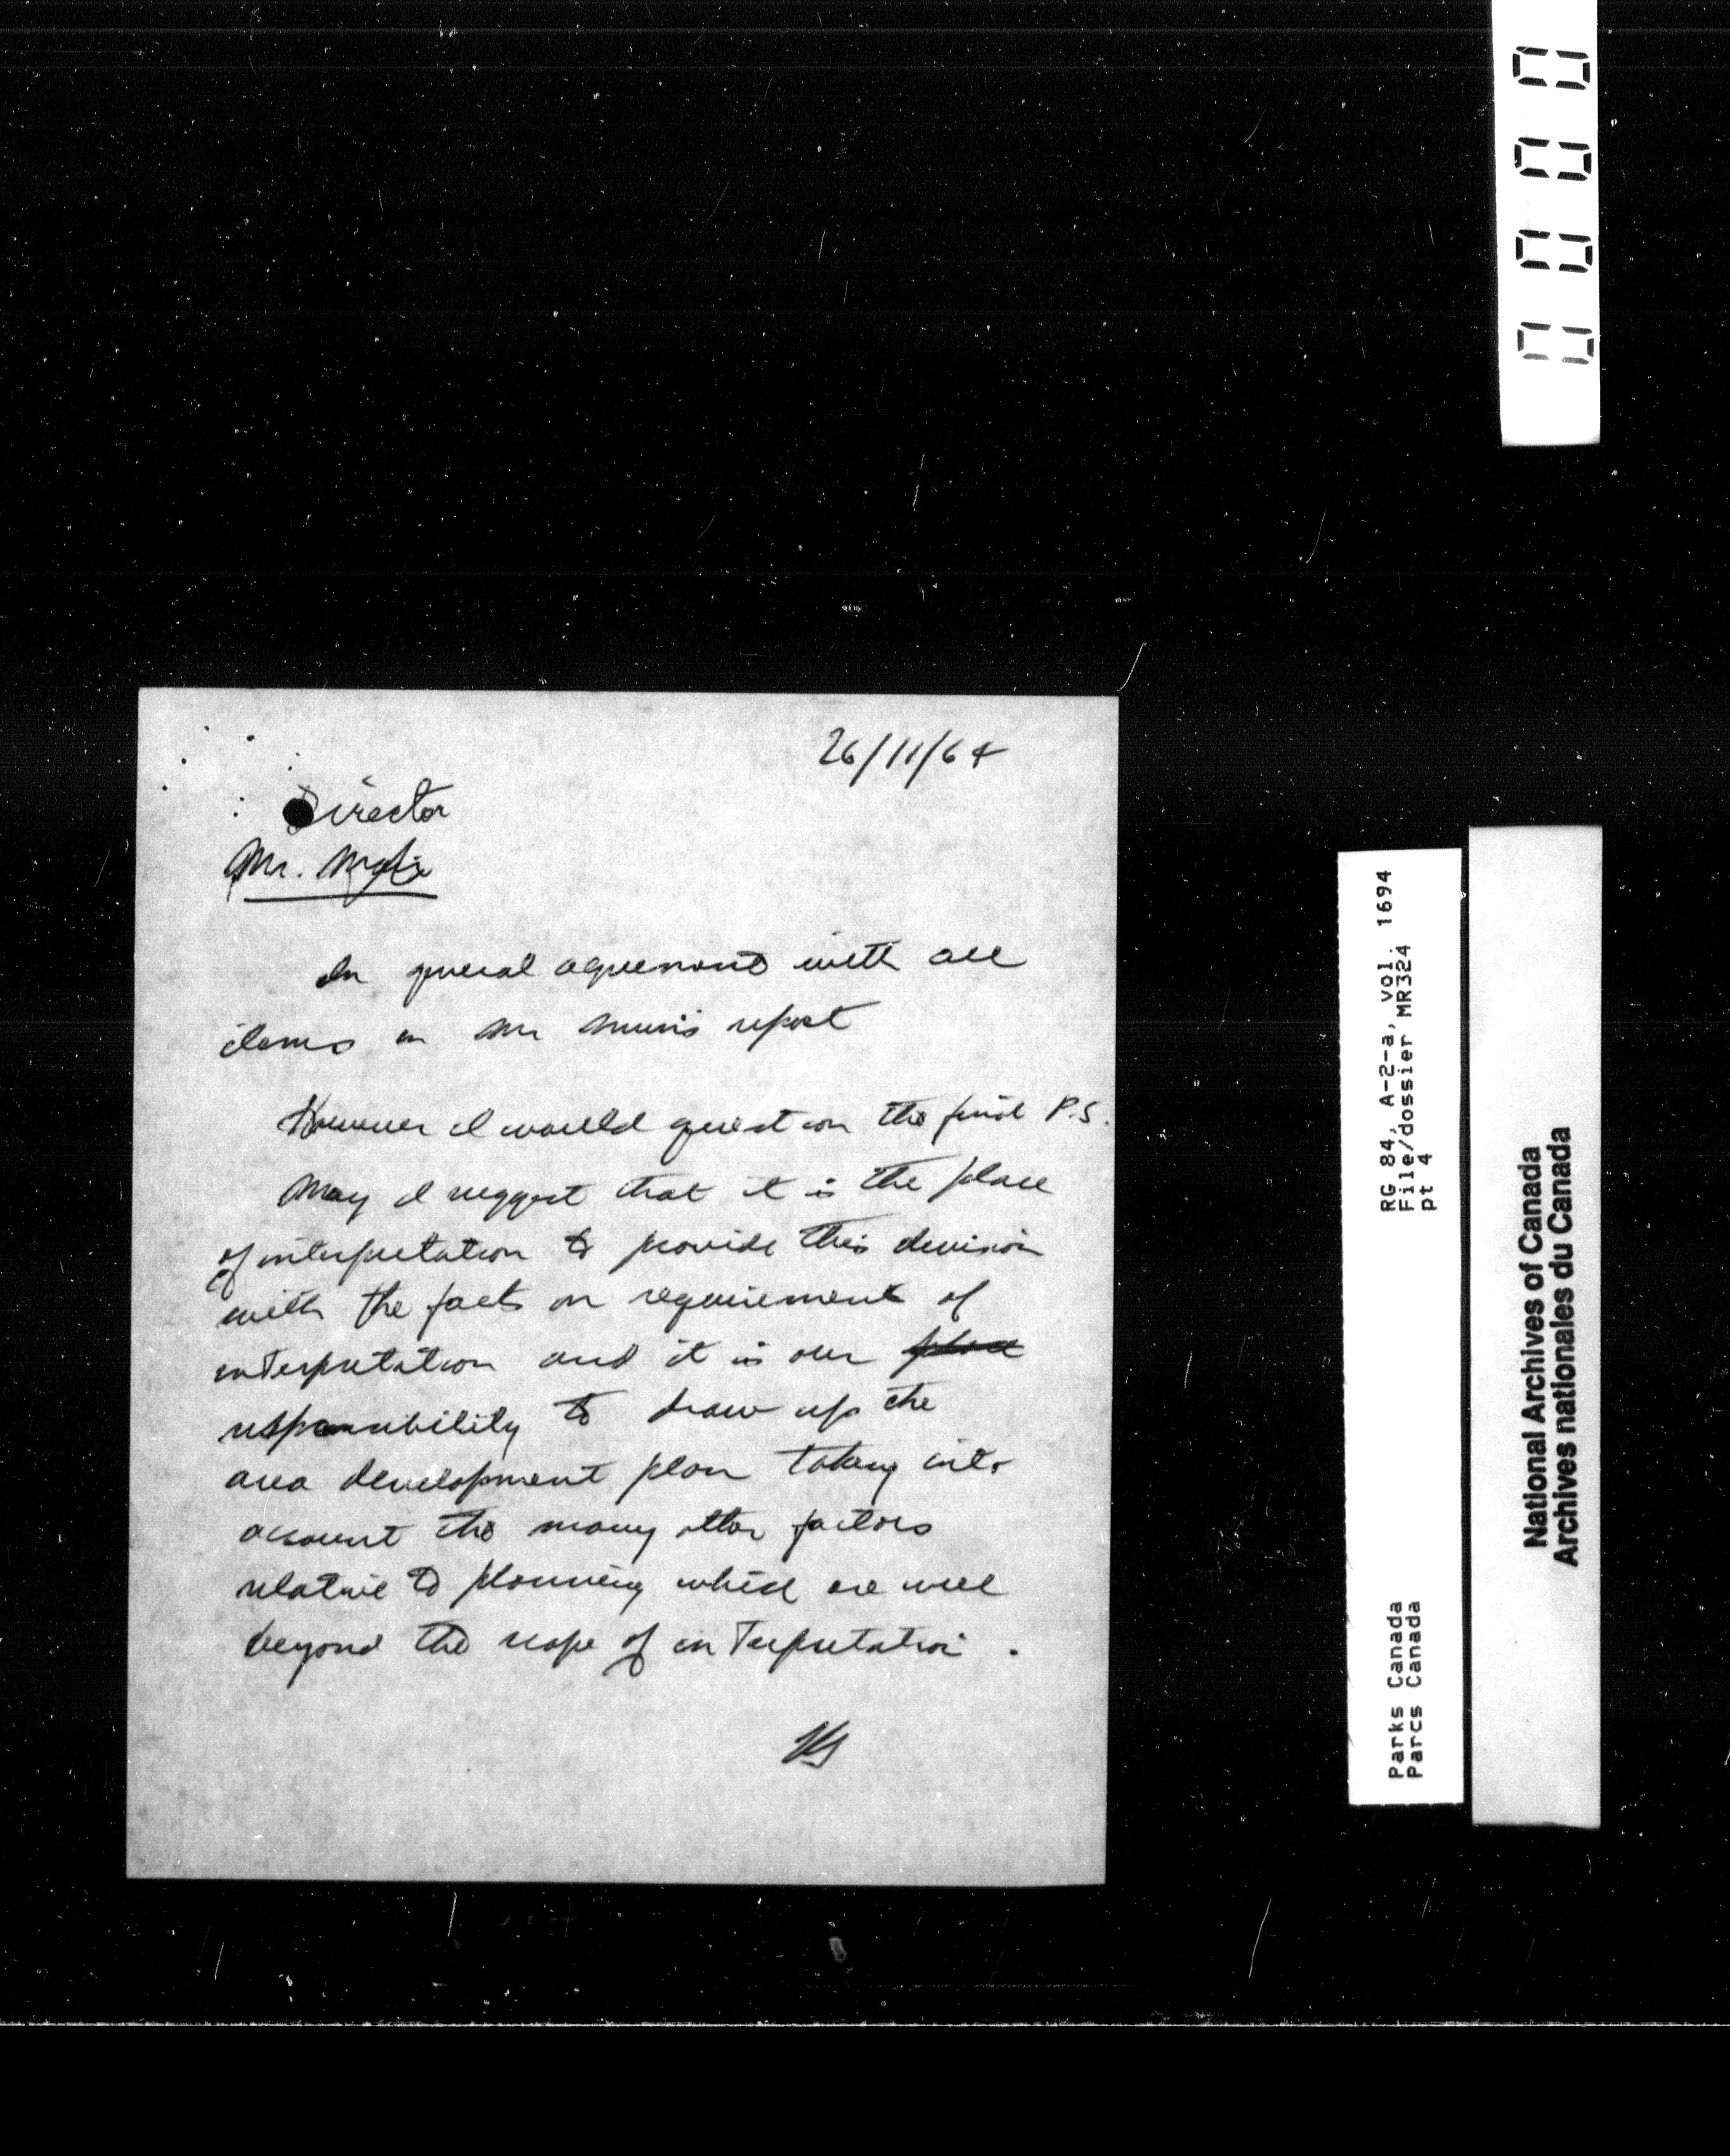 0000
26/11/64
Director
Mr.
In general agreement with all
items in Mr report
However I would question the final P.S.
May I suggest that it is the place
of interpretation to provide this division
with the facts on requirements of
interpretation and it is our place
responsibility to draw up the
area development plan taking into
account the many other factors
relative to planning which are well
beyond the scope of interpretation.
RG 84, A-2-a, vol. 1694
File/dossier MR324
pt 4
Parks Canada
Parcs Canada
National Archives of Canada
Archives nationales du Canada